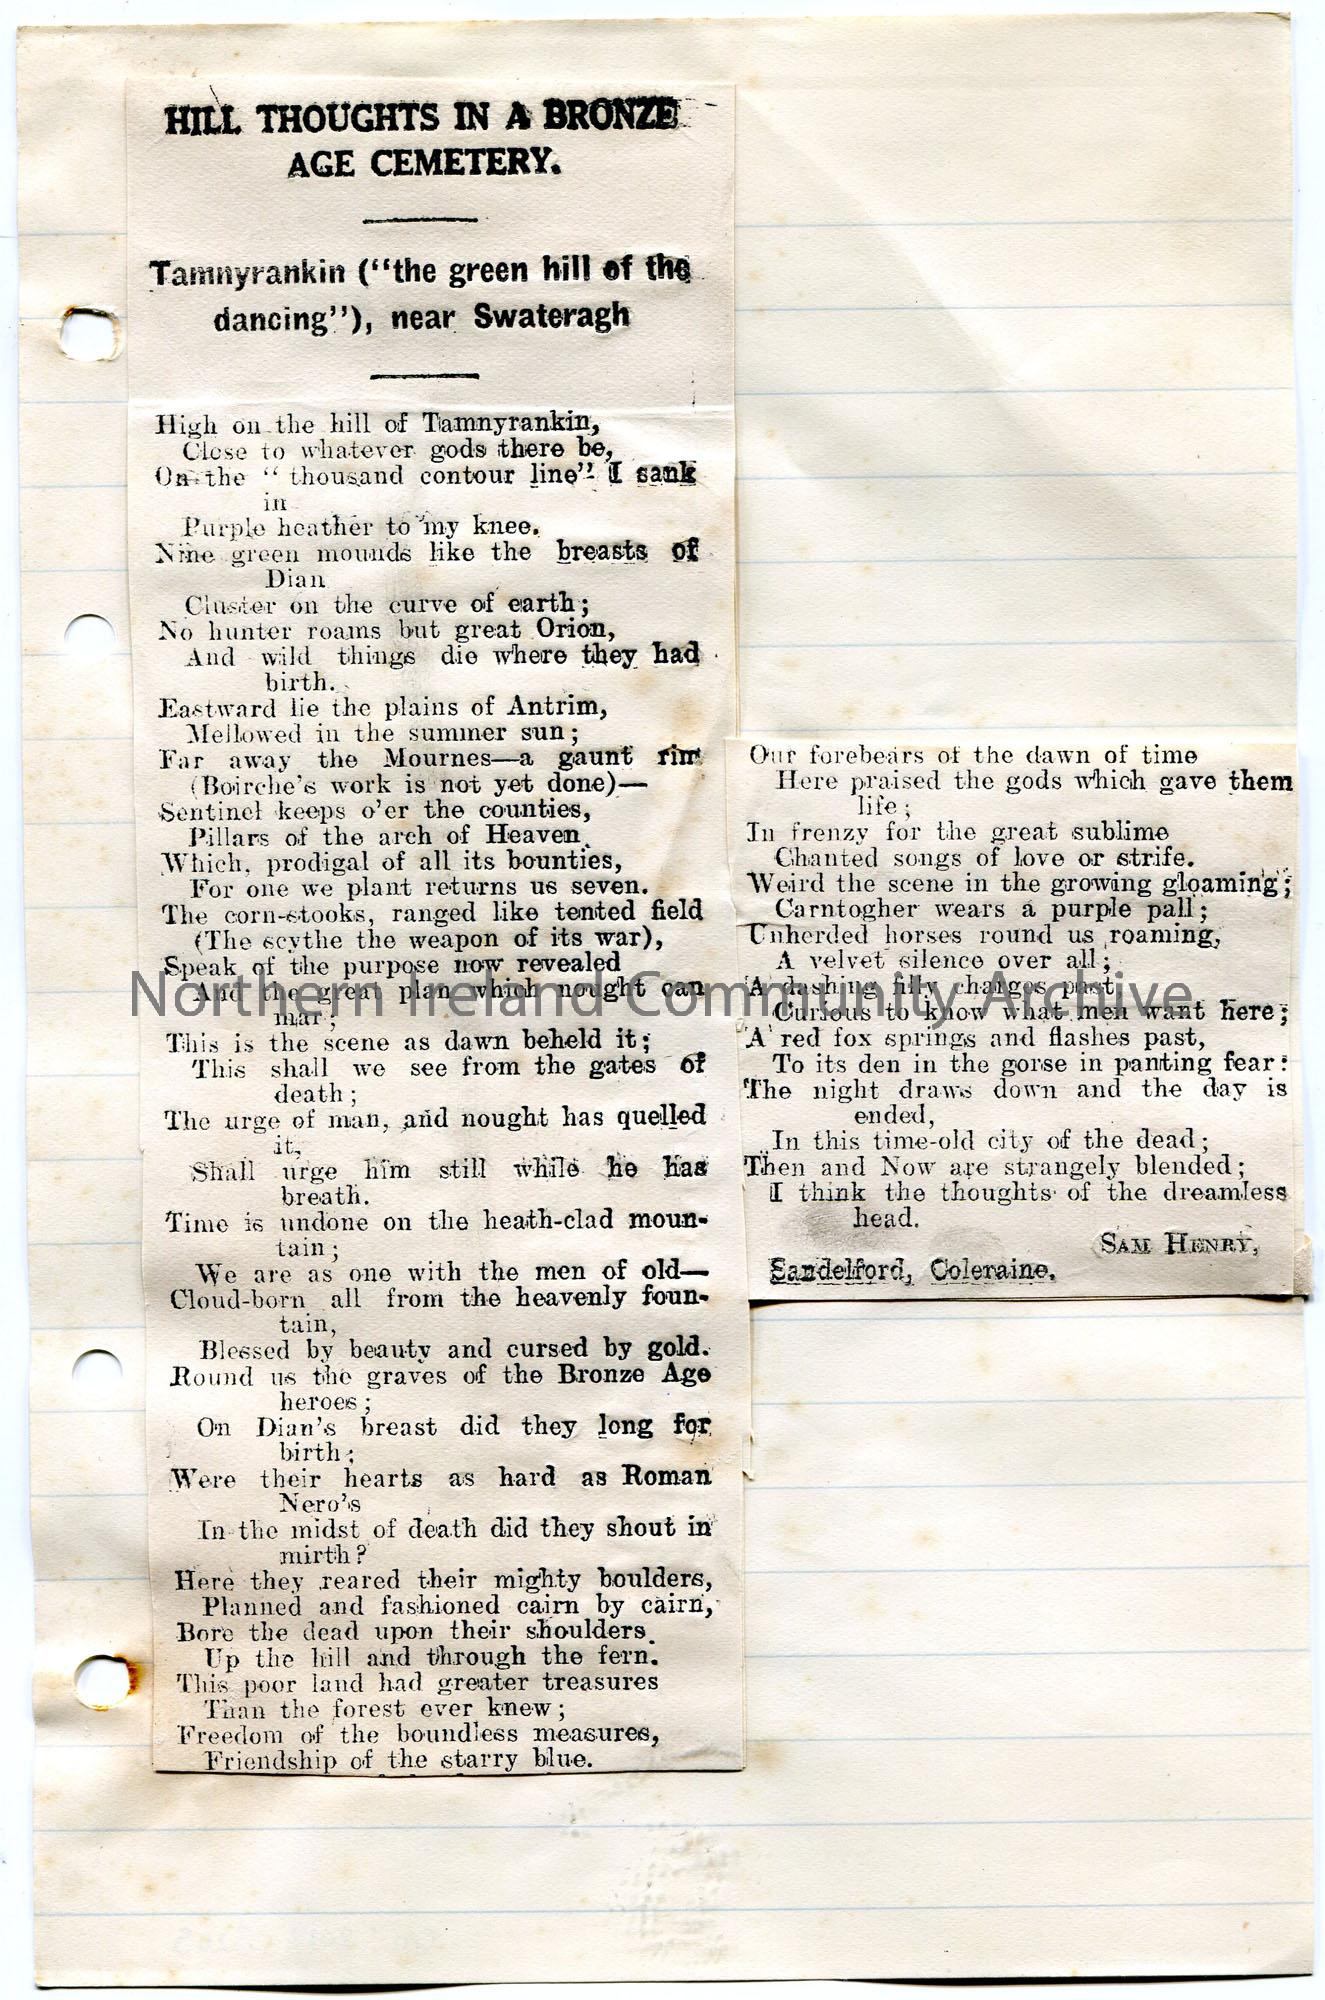 HILL THOUGHTS IN A BRONZE
AGE CEMETERY.
Tamnyrankin ("the green hill of the
dancing"), near Swateragh
High on the hill of Tamnyrankin,
Close to whatever gods there be,
On the "thousand contour line" I sank
in
Purple heather to my knee.
Nine green mounds like the breasts of
Dian
Cluster on the curve of earth;
No hunter roams but great Orion,
And wild things die where they had
birth.
Eastward lie the plains of Antrim,
Mellowed in the summer sun;
Far away the Mournes—a gaunt rim
(Boirche's work is not yet done)—
Sentinel keeps o'er the counties,
Pillars of the arch of Heaven
Which, prodigal of all its bounties,
For one we plant returns us seven.
The corn-stooks, ranged like tented field
(The scythe the weapon of its war),
Speak of the purpose now revealed
And the great plan which nought can
mar;
This is the scene as dawn beheld it;
This shall we see from the gates of
death;
The urge of man, and nought has quelled
it,
Shall urge him still while he has
breath.
Time is undone on the heath-clad moun-
tain;
We are as one with the men of old—
Cloud-born all from the heavenly foun-
tain,
Blessed by beauty and cursed by gold.
Round us the graves of the Bronze Age
heroes;
On Dian's breast did they long for
birth;
Were their hearts as hard as Roman
Nero's
In the midst of death did they shout in
mirth?
Here they reared their mighty boulders,
Planned and fashioned cairn by cairn,
Bore the dead upon their shoulders
Up the hill and through the fern.
This poor land had greater treasures
Than the forest ever knew;
Freedom of the boundless measures,
Friendship of the starry blue.
Our forebears of the dawn of time
Here praised the gods which gave them
life;
In frenzy for the great sublime
Chanted songs of love or strife.
Weird the scene in the growing gloaming;
Carntogher wears a purple pall;
Unherded horses round us roaming,
A velvet silence over all;
A dashing filly charges past,
Curious to know what men want here;
A red fox springs and flashes past,
To its den in the gorse in panting fear:
The night draws down and the day is
ended,
In this time-old city of the dead;
Then and Now are strangely blended;
I think the thoughts of the dreamless
head.
SAM HENRY,
Sandelford, Coleraine.
Northern Ireland Community Archive